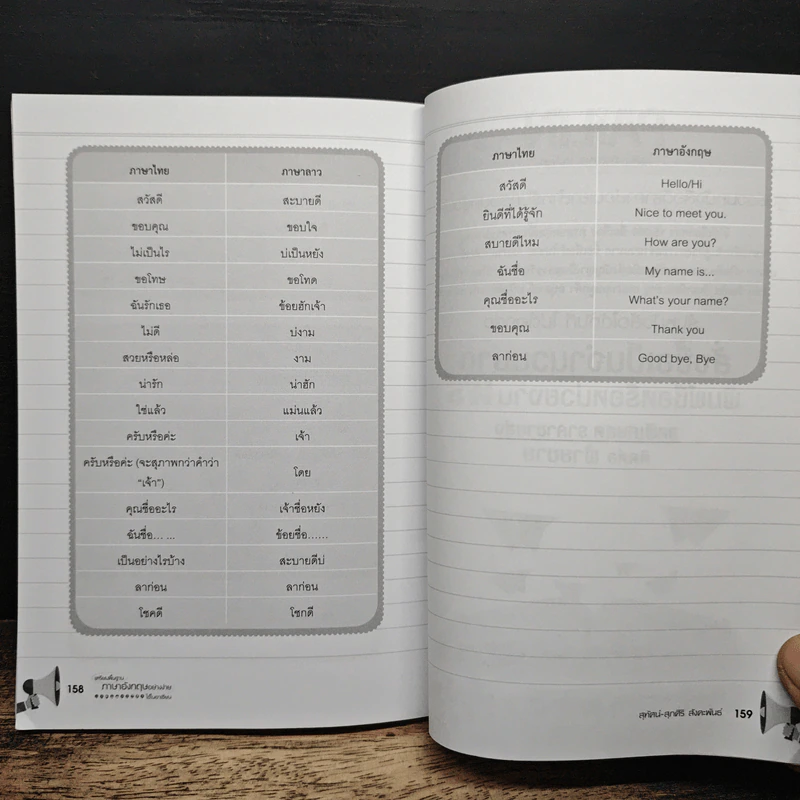 ภาษาไทย ภาษาลาว
สวัสดี สะบายดี
ขอบคุณ ขอบใจ
ไม่เป็นไร บ่เป็นหยัง
ขอโทษ ขอโทด
ฉันรักเธอ ข้อยฮักเจ้า
ไม่ดี บ่งาม
สวยหรือหล่อ งาม
น่ารัก น่าฮัก
ใช่แล้ว แม่นแล้ว
ครับหรือค่ะ เจ้า
ครับหรือค่ะ (จะสุภาพกว่าคำว่า
"เจ้า") โดย
คุณชื่ออะไร เจ้าชื่อหยัง
ฉันชื่อ... ... ข้อยชื่อ......
เป็นอย่างไรบ้าง สะบายดีบ่
ลาก่อน ลาก่อน
โชคดี โชกดี
158
เตรียมพื้นฐาน
ภาษาอังกฤษอย่างง่าย
ภาษาไทย ภาษาอังกฤษ
สวัสดี Hello/Hi
ยินดีที่ได้รู้จัก Nice to meet you.
สบายดีไหม How are you?
ฉันชื่อ My name is...
คุณชื่ออะไร What's your name?
ขอบคุณ Thank you
ลาก่อน Good bye, Bye
สุทัศน์-สุภศิริ สังคะพันธ์ 159